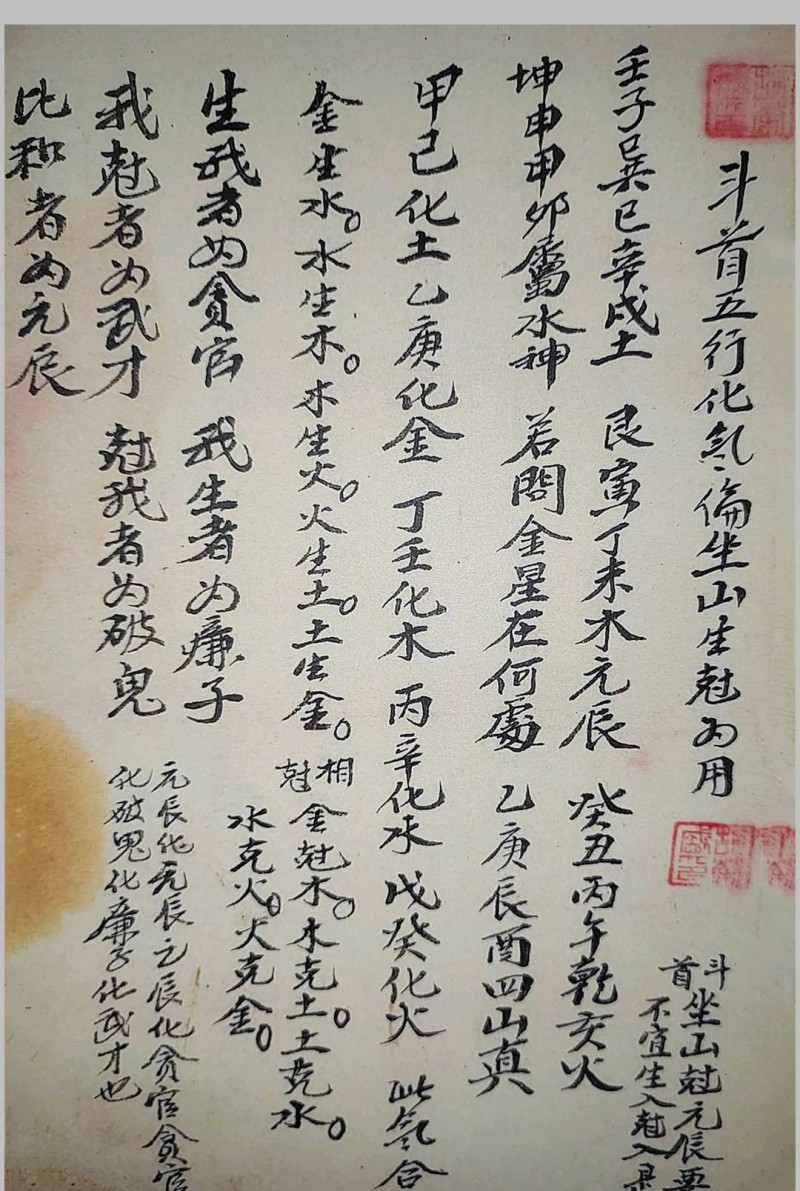 斗首五行化氣倫坐山生尅为用
斗首
坐山尅元辰要
不宜生入尅入
壬子巽巳辛戌土 艮寅丁未木元辰 癸丑丙午乾亥火
坤申甲卯屬水神 若問金星在何處 乙庚辰酉四山真
甲己化土乙庚化金 丁壬化木 丙辛化水 戊癸化火 此氣合
金生水。水生木。木生火。火生土。土生金。
相尅
金尅木。木克土。土克水。
水克火。火克金。
生我者为貪官 我生者为廉子
我尅者为武才 尅我者为破鬼
比和者为元辰
元辰化元辰元辰化貪官貪官
化破鬼化廉子化武才也